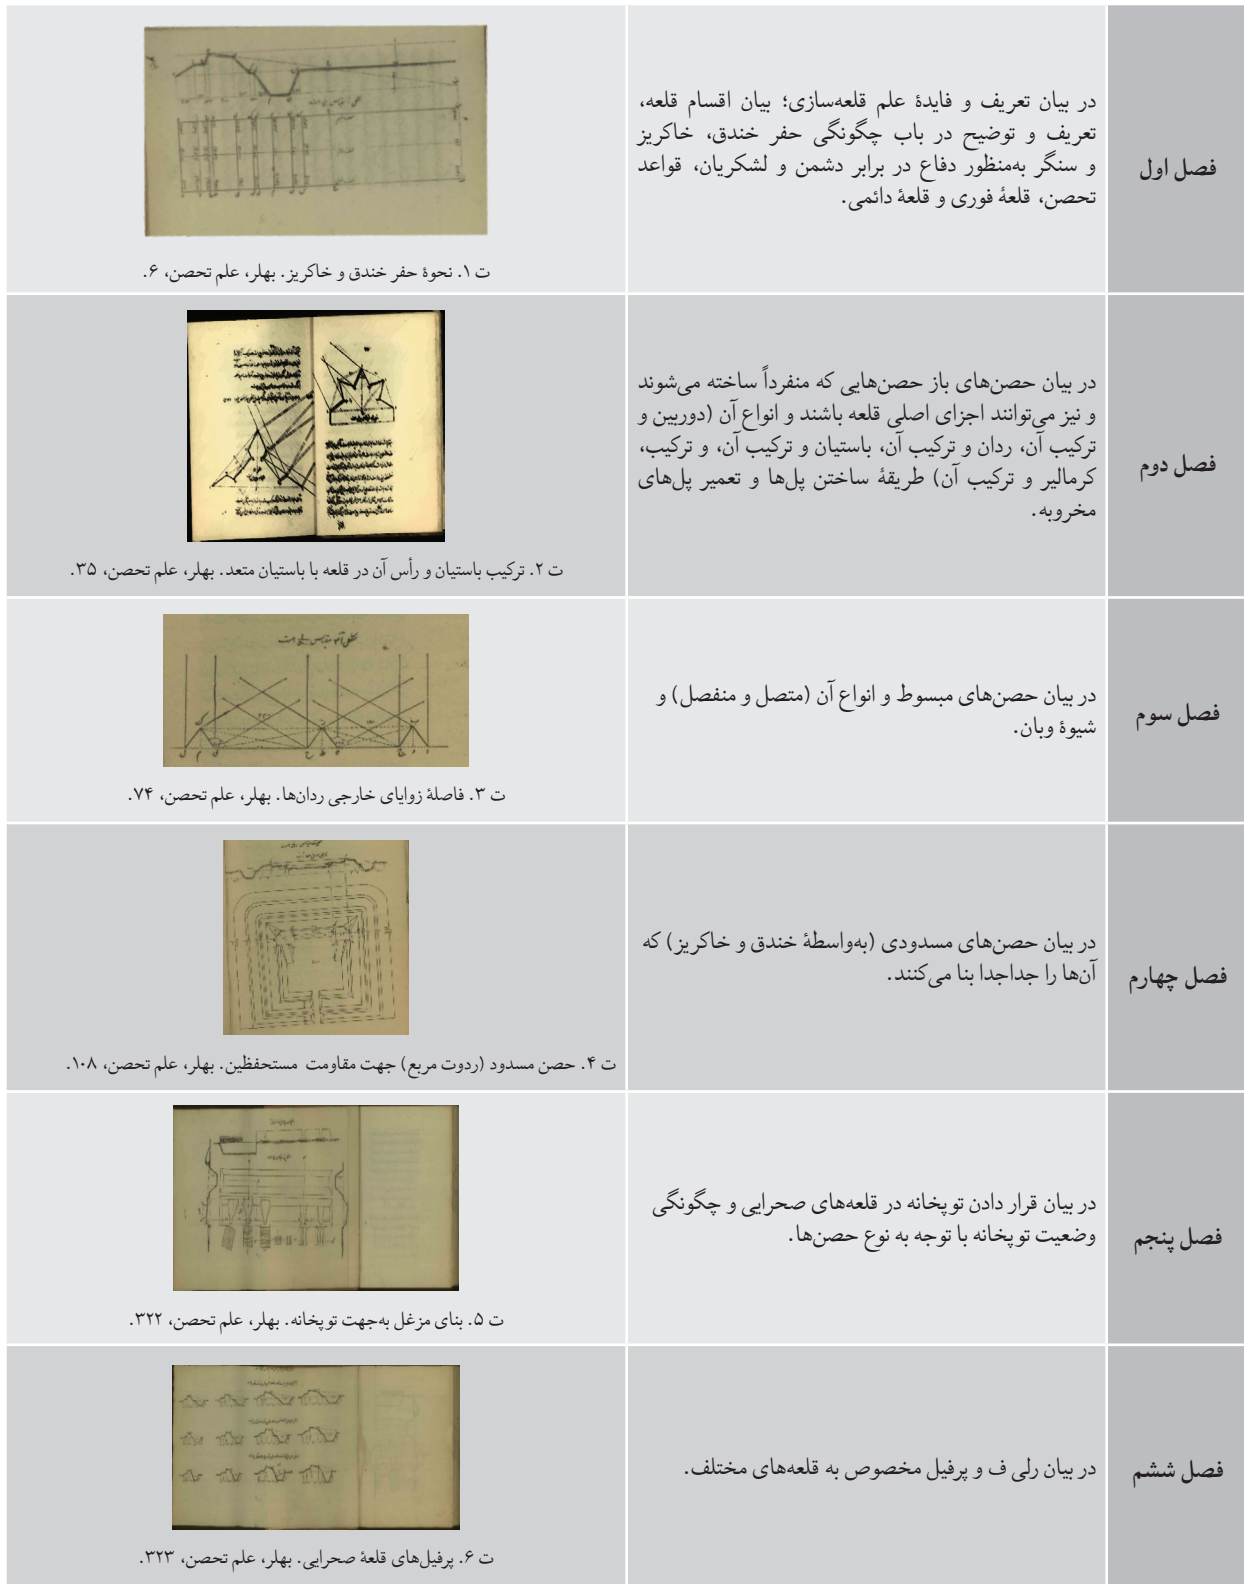 فصل اول
در بیان تعریف و فایدهٔ علم قلعه‌سازی؛ بیان اقسام قلعه،
تعریف و توضیح در باب چگونگی حفر خندق، خاکریز
و سنگر به‌منظور دفاع در برابر دشمن و لشکریان، قواعد
تحصن، قلعهٔ فوری و قلعهٔ دائمی.
ت ۱. نحوهٔ حفر خندق و خاکریز. بهلر، علم تحصن، ۶.
فصل دوم
در بیان حصن‌های باز حصن‌هایی که منفرداً ساخته می‌شوند
و نیز می‌توانند اجزای اصلی قلعه باشند و انواع آن (دوربین و
ترکیب آن، ردان و ترکیب آن، باستیان و ترکیب آن، و ترکیب،
کرمالیر و ترکیب آن) طریقهٔ ساختن پل‌ها و تعمیر پل‌های
مخروبه.
ت ۲. ترکیب باستیان و رأس آن در قلعه با باستیان متعد. بهلر، علم تحصن، ۳۵.
فصل سوم
در بیان حصن‌های مبسوط و انواع آن (متصل و منفصل) و
شیوهٔ وبان.
ت ۳. فاصلهٔ زوایای خارجی ردان‌ها. بهلر، علم تحصن، ۷۴.
فصل چهارم
در بیان حصن‌های مسدودی (به‌واسطهٔ خندق و خاکریز) که
آن‌ها را جداجدا بنا می‌کنند.
ت ۴. حصن مسدود (ردوت مربع) جهت مقاومت مستحفظین. بهلر، علم تحصن، ۱۰۸.
فصل پنجم
در بیان قرار دادن توپخانه در قلعه‌های صحرایی و چگونگی
وضعیت توپخانه با توجه به نوع حصن‌ها.
ت ۵. بنای مزغل به‌جهت توپخانه. بهلر، علم تحصن، ۳۲۲.
فصل ششم
در بیان رلی ف و پرفیل مخصوص به قلعه‌های مختلف.
ت ۶. پرفیل‌های قلعهٔ صحرایی. بهلر، علم تحصن، ۳۲۳.